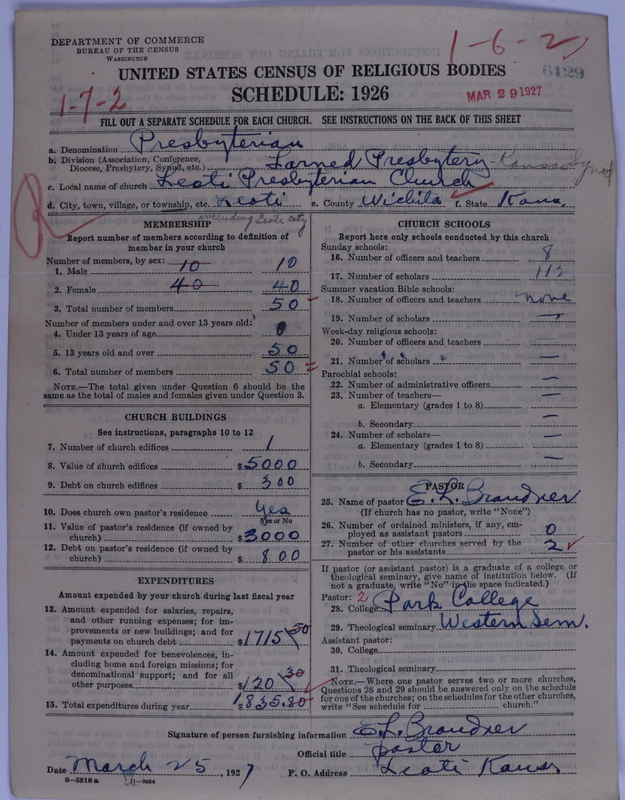 DEPARTMENT OF COMMERCE
BUREAU OF THE CENSUS
WASHINGTON
1-6-2
6129
UNITED STATES CENSUS OF RELIGIOUS BODIES
1-7-2
SCHEDULE: 1926
MAR 29 1927
FILL OUT A SEPARATE SCHEDULE FOR EACH CHURCH. SEE INSTRUCTIONS ON THE BACK OF THIS SHEET
a. Denomination Presbyterian
b. Division (Association, Conference, Diocese, Presbytery, Synod, etc.) Larned Presbytery - Kansas Synod
c. Local name of church Leoti Presbyterian Church
d. City, town, village, or township, etc. Leoti e. County Wichita f. State Kans.
including Leoti city
MEMBERSHIP
Report number of members according to definition of member in your church
Number of members, by sex:
1. Male 10 10
2. Female 40 40
3. Total number of members 50
Number of members under and over 13 years old:
4. Under 13 years of age 0
5. 13 years old and over 50
6. Total number of members 50
NOTE.—The total given under Question 6 should be the same as the total of males and females given under Question 3.
CHURCH BUILDINGS
See instructions, paragraphs 10 to 12
7. Number of church edifices 1
8. Value of church edifices $5000
9. Debt on church edifices $300
10. Does church own pastor's residence Yes
Yes or No
11. Value of pastor's residence (if owned by church) $3000
12. Debt on pastor's residence (if owned by church) $800
EXPENDITURES
Amount expended by your church during last fiscal year
13. Amount expended for salaries, repairs, and other running expenses; for improvements or new buildings; and for payments on church debt $1715 50
14. Amount expended for benevolences, including home and foreign missions; for denominational support; and for all other purposes $120 30
15. Total expenditures during year $1835.80
CHURCH SCHOOLS
Report here only schools conducted by this church
Sunday schools:
16. Number of officers and teachers 8
17. Number of scholars
Summer vacation Bible schools:
18. Number of officers and teachers none
19. Number of scholars —
Week-day religious schools:
20. Number of officers and teachers
21. Number of scholars —
Parochial schools:
22. Number of administrative officers —
23. Number of teachers—
a. Elementary (grades 1 to 8) —
b. Secondary —
24. Number of scholars—
a. Elementary (grades 1 to 8) —
b. Secondary —
PASTOR
25. Name of pastor E. L. Brandner
(If church has no pastor, write "None")
26. Number of ordained ministers, if any, employed as assistant pastors 0
27. Number of other churches served by the pastor or his assistants 2
If pastor (or assistant pastor) is a graduate of a college or theological seminary, give name of institution below. (If not a graduate, write "No" in the space indicated.)
Pastor: 2
28. College Park College
29. Theological seminary Western Sem.
Assistant pastor:
30. College
31. Theological seminary
NOTE.—Where one pastor serves two or more churches, Questions 28 and 29 should be answered only on the schedule for one of the churches; on the schedules for the other churches, write "See schedule for church."
Signature of person furnishing information E. L. Brandner
Official title pastor
Date March 25, 1927 P. O. Address Leoti Kans.
8-5518a